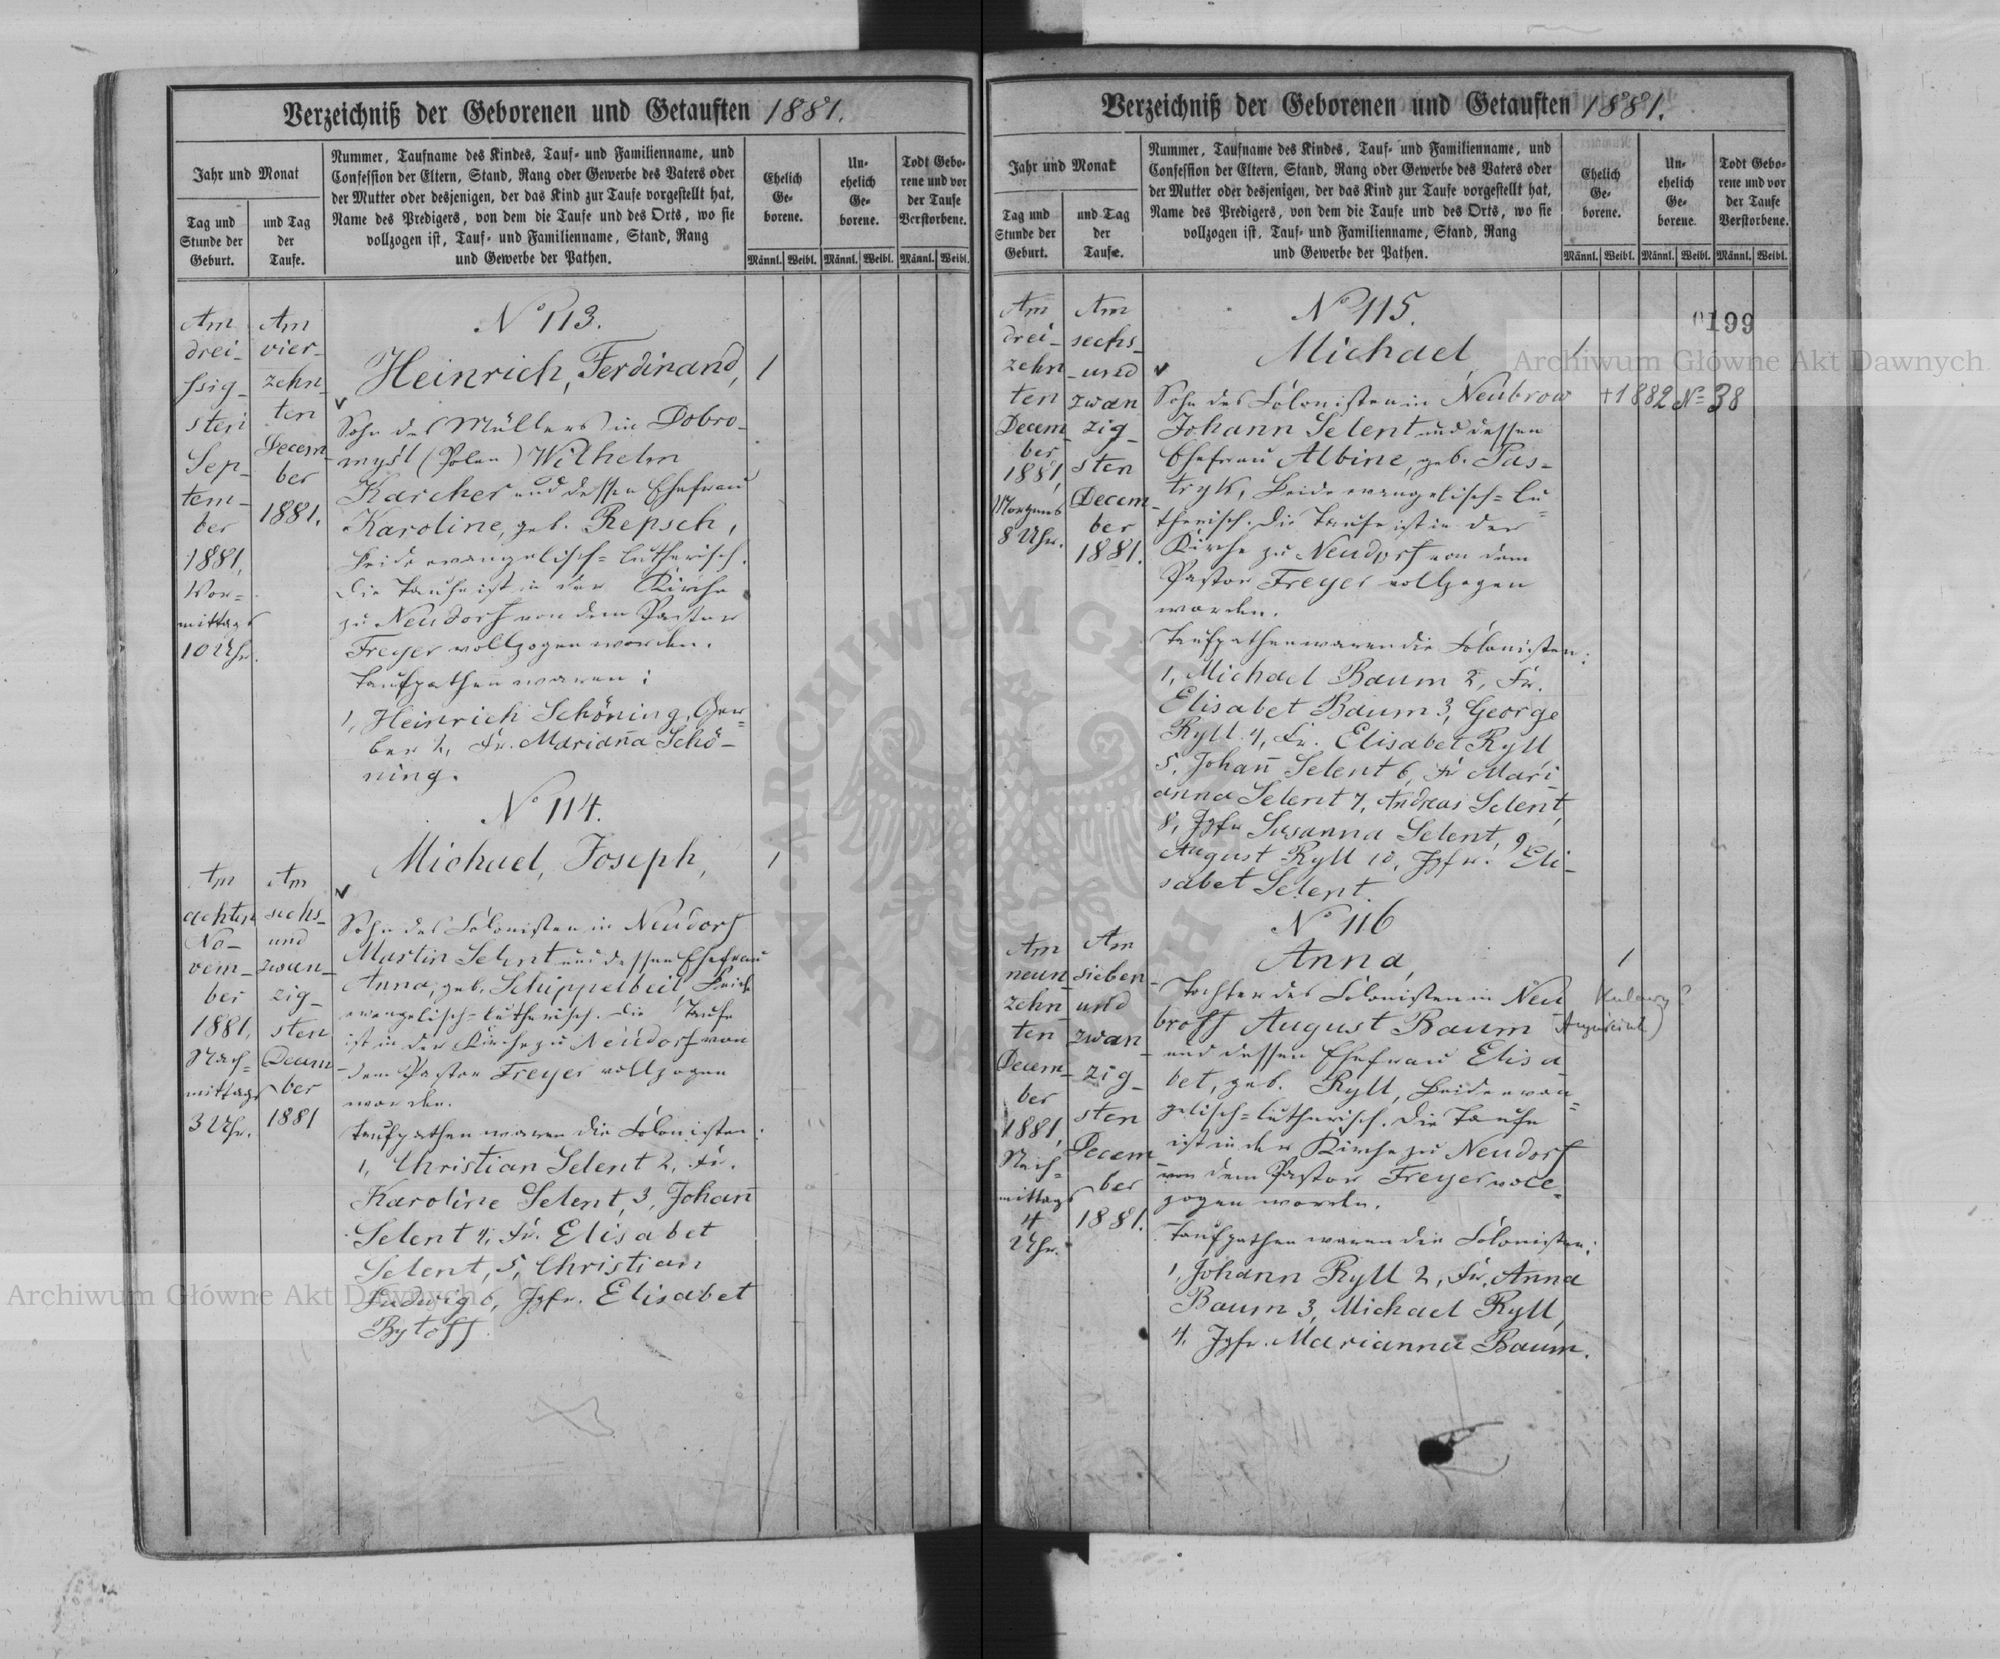 Verzeichniß der Geborenen und Getauften 1881.
Jahr und Monat
Tag und
Stunde der
Geburt.
und Tag
der
Taufe.
Nummer, Taufname des Kindes, Tauf- und Familienname, und
Confession der Eltern, Stand, Rang oder Gewerbe des Vaters oder
der Mutter oder desjenigen, der das Kind zur Taufe vorgestellt hat,
Name des Predigers, von dem die Taufe und des Orts, wo sie
vollzogen ist, Tauf- und Familienname, Stand, Rang
und Gewerbe der Pathen.
Ehelich
Ge-
borene.
Un-
ehelich
Ge-
borene.
Todt Gebo-
rene und vor
der Taufe
Verstorbene.
Männl. Weibl. Männl. Weibl. Männl. Weibl.
Am
drei-
ssig-
sten
Sep-
tem-
ber
1881,
Vor-
mittags
10 Uhr.
Am
vier-
zehn-
ten
Decem-
ber
1881.
No 113.
Heinrich, Ferdinand, 1
Sohn des Müllers in Dobro-
myśl (Polen) Wilhelm
Karcher und dessen Ehefrau
Karoline, geb. Repsch,
Beide evangelisch-lutherisch.
Die Taufe ist in der Kirche
zu Neudorf von dem Pastor
Freyer vollzogen worden.
Taufpathen waren:
1, Heinrich Schöning, Ger-
ber 2, Fr. Marianna Schö-
ning.
Am
achten
No-
vem-
ber
1881,
Nach-
mittags
3 Uhr.
Am
sechs-
und
zwan-
zig-
sten
Decem-
ber
1881
No 114.
Michael, Joseph, 1
Sohn des Colonisten in Neudorf
Martin Selent und dessen Ehefrau
Anna, geb. Schippelbeil Beide
evangelisch-lutherisch. Die Taufe
ist in der Kirche zu Neudorf von
dem Pastor Freyer vollzogen
worden.
Taufpathen waren die Colonisten:
1, Christian Selent 2, Fr.
Karoline Selent, 3, Johann
Selent 4, Fr. Elisabet
Selent, 5, Christian
Ludwig 6, Jgfr. Elisabet
Bytoff.
Verzeichniß der Geborenen und Getauften 1881.
Jahr und Monat
Tag und
Stunde der
Geburt.
und Tag
der
Taufe.
Nummer, Taufname des Kindes, Tauf- und Familienname, und
Confession der Eltern, Stand, Rang oder Gewerbe des Vaters oder
der Mutter oder desjenigen, der das Kind zur Taufe vorgestellt hat,
Name des Predigers, von dem die Taufe und des Orts, wo sie
vollzogen ist, Tauf- und Familienname, Stand, Rang
und Gewerbe der Pathen.
Ehelich
Ge-
borene.
Un-
ehelich
Ge-
borene.
Todt Gebo-
rene und vor
der Taufe
Verstorbene.
Männl. Weibl. Männl. Weibl. Männl. Weibl.
0199
Am
drei-
zehn
ten
Decem-
ber
1881,
Morgens
8 Uhr.
Am
sechs-
und
zwan
zig-
sten
Decem-
ber
1881.
No 115.
Michael, 1
Sohn des Colonisten in Neubrow +1882 No 38
Johann Selent und dessen
Ehefrau Albine, geb. Pas-
tryk, Beide evangelisch-lu-
therisch. Die Taufe ist in der
Kirche zu Neudorf von dem
Pastor Freyer vollzogen
worden.
Taufpathen waren die Colonisten:
1, Michael Baum 2, Fr.
Elisabet Baum 3, George
Ryll 4, Fr. Elisabet Ryll
5, Johann Selent 6, Fr Mari
anna Selent 7, Andreas Selent,
8, Jgfr Susanna Selent, 9,
August Ryll 10, Jgfr. Eli-
sabet Selent.
Am
neun
zehn
ten
Decem-
ber
1881,
Nach-
mittags
4
Uhr.
Am
sieben-
und
zwan-
zig-
sten
Decem
ber
1881.
No 116
Anna, 1
Tochter des Colonisten in Neu
broff August Baum
und dessen Ehefrau Elisa
bet, geb. Ryll, Beide evan-
gelisch-lutherisch. Die Taufe
ist in der Kirche zu Neudorf
von dem Pastor Freyer voll-
zogen worden.
Taufpathen waren die Colonisten:
1, Johann Ryll 2, Fr. Anna
Baum 3, Michael Ryll,
4, Jgfr. Marianna Baum.
Archiwum Główne Akt Dawnych
Archiwum Główne Akt Dawnych